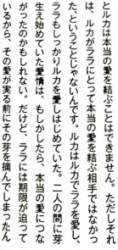 とルカは本当の愛を結ぶことはできません。ただしそれ
は、ルカがララにとって本当の愛を結ぶ相手ではなかっ
た、ということじゃないんです。ルカはルカでララを愛し、
ララもしっかりルカを愛しはじめていた。二人の間に芽
生え始めていた愛情は、もしかしたら、本当の愛につな
がったのかもしれない。だけど、ララには期限が迫って
いるから、その愛が実る前にその芽を摘んでしまったん